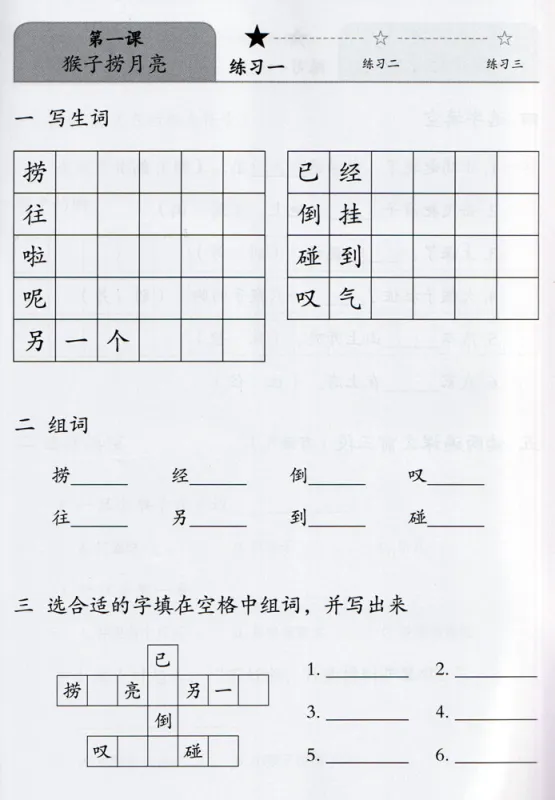 第一课
猴子捞月亮
练习一
练习二
练习三
一 写生词
捞
往
啦
呢
另一个
已经
倒挂
碰到
叹气
二 组词
捞______ 经______ 倒______ 叹______
往______ 另______ 到______ 碰______
三 选合适的字填在空格中组词，并写出来
已
捞 亮 另一
倒
叹 碰
1. ________ 2. ________
3. ________ 4. ________
5. ________ 6. ________